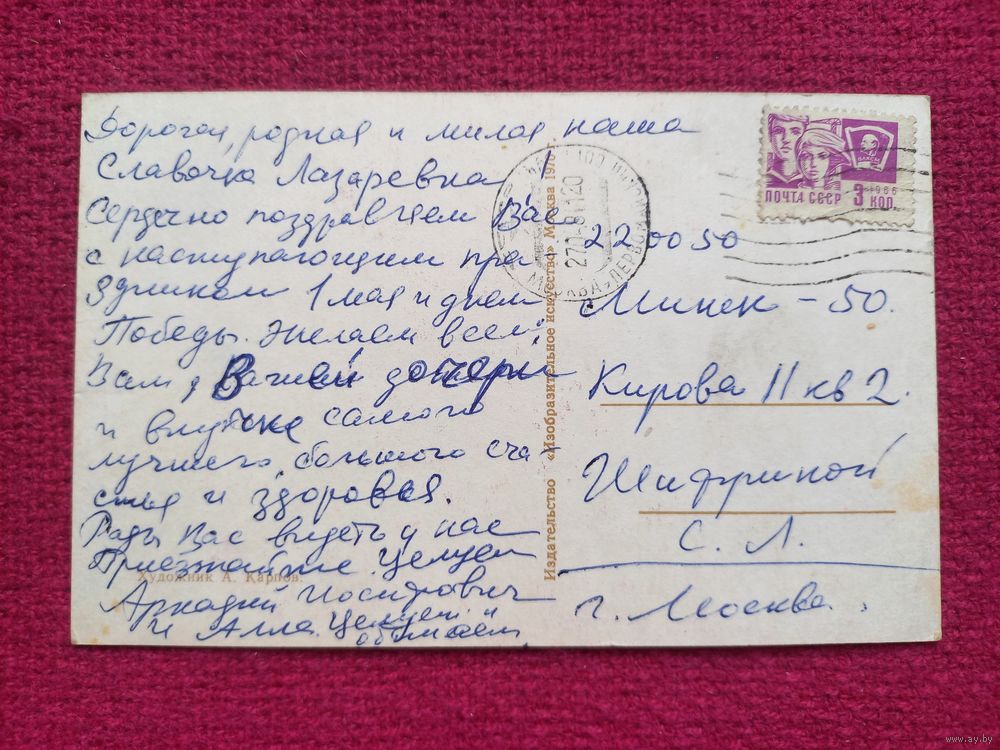 Дорогая, родная и милая наша
Славочка Лазаревна!
Сердечно поздравляем Вас
с наступающим пра
здником 1 мая и днем
Победы. Желаем всем,
Вам, Вашей дочери
и внучке самого
лучшего, большого сча
стья и здоровья.
Рады Вас видеть у нас
Приезжайте. Целуем
Художник А. Карпов.
Аркадий Иосифович
и Алла. Целуем и
обнимаем
Издательство «Изобразительное искусство» Москва 1970 г.
МОСКВА
ПОЧТА СССР
1966
3 КОП.
ВЛКСМ
220050
г. Минск - 50.
Кирова 11 кв 2.
Шифриной
С. Л.
г. Москва.
www.ay.by